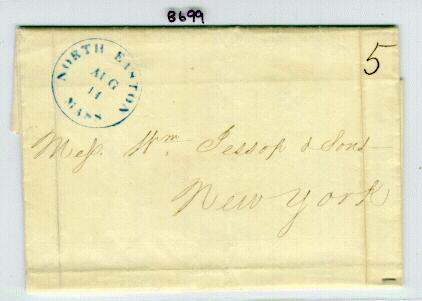 8699
NORTH EASTON
AUG
14
MASS
5
Mess. Wm. Jessop & Sons
New York